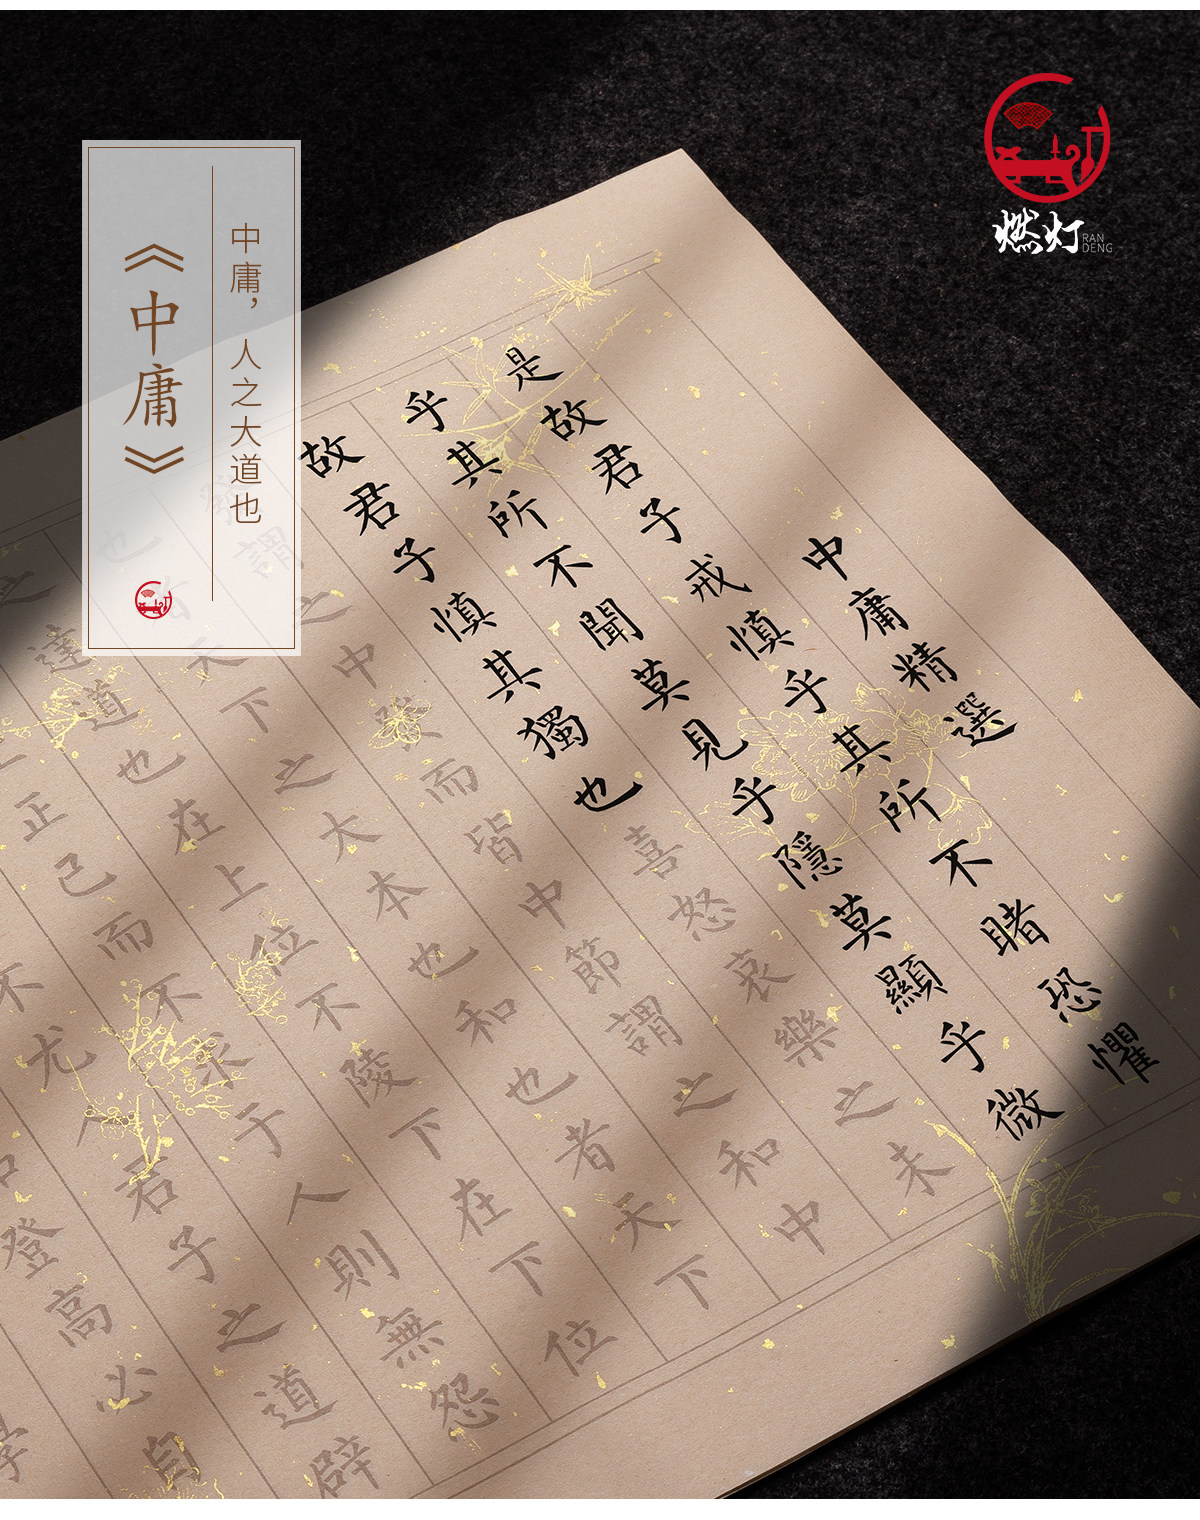 燃灯
RAN
DENG
中庸，人之大道也
《中庸》
中庸精選
是故君子戒慎乎其所不睹恐懼
乎其所不聞莫見乎隱莫顯乎微
故君子慎其獨也喜怒哀樂之未
發謂之中發而皆中節謂之和中
也者天下之大本也和也者天下
之達道也在上位不陵下在下位
正己而不求于人則無怨
不尤人君子之道辟
登高必自